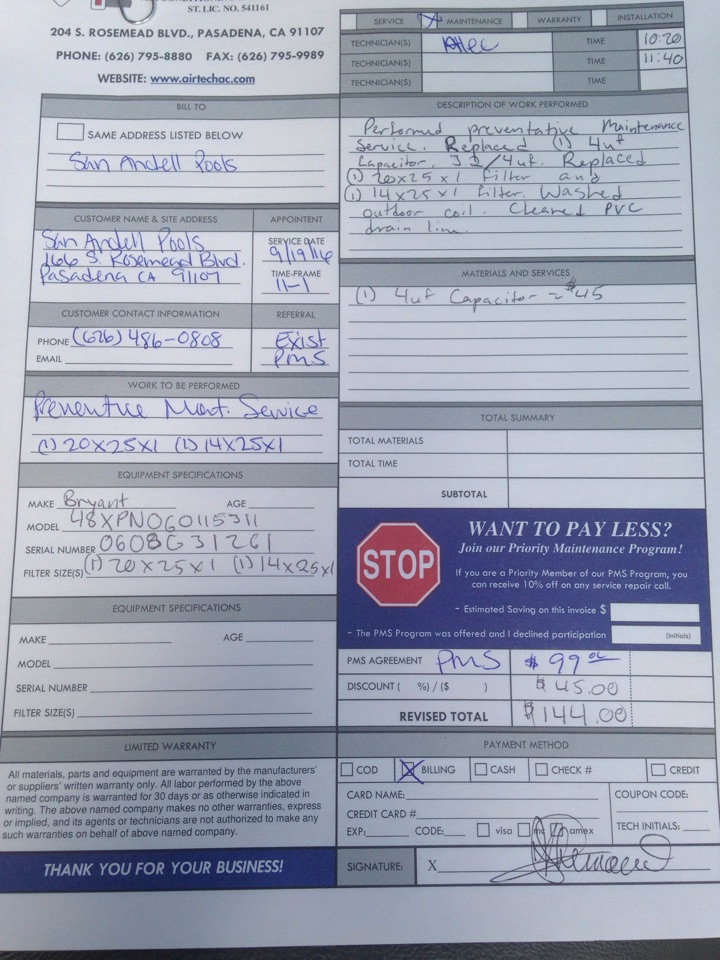 ST. LIC. NO. 541161
204 S. ROSEMEAD BLVD., PASADENA, CA 91107
PHONE: (626) 795-8880 FAX: (626) 795-9989
WEBSITE: www.airtechac.com
BILL TO
SAME ADDRESS LISTED BELOW
San Andell Pools
CUSTOMER NAME & SITE ADDRESS
San Andell Pools
166 S. Rosemead Blvd.
Pasadena CA 91107
APPOINTMENT
SERVICE DATE
9/19/16
TIME-FRAME
11-1
CUSTOMER CONTACT INFORMATION
PHONE (626) 486-0808
EMAIL
REFERRAL
Exist
PMS
WORK TO BE PERFORMED
Preventive Mant. Service
(1) 20X25X1 (1) 14X25X1
EQUIPMENT SPECIFICATIONS
MAKE Bryant AGE
MODEL 48XPN060115311
SERIAL NUMBER 0608G31261
FILTER SIZE(S) (1) 20X25X1 (1) 14X25X1
EQUIPMENT SPECIFICATIONS
MAKE AGE
MODEL
SERIAL NUMBER
FILTER SIZE(S)
LIMITED WARRANTY
All materials, parts and equipment are warranted by the manufacturers'
or suppliers' written warranty only. All labor performed by the above
named company is warranted for 30 days or as otherwise indicated in
writing. The above named company makes no other warranties, express
or implied, and its agents or technicians are not authorized to make any
such warranties on behalf of above named company.
THANK YOU FOR YOUR BUSINESS!
SERVICE X MAINTENANCE WARRANTY INSTALLATION
TECHNICIAN(S) Alec TIME 10:20
TECHNICIAN(S) TIME 11:40
TECHNICIAN(S) TIME
DESCRIPTION OF WORK PERFORMED
Performed preventative Maintenance
Service. Replaced (1) 4uf
Capacitor, 3.2/4uf. Replaced
(1) 20x25x1 Filter and
(1) 14x25x1 filter. Washed
outdoor coil. Cleaned PVC
drain line.
MATERIALS AND SERVICES
(1) 4uf Capacitor - $45
TOTAL SUMMARY
TOTAL MATERIALS
TOTAL TIME
SUBTOTAL
STOP
WANT TO PAY LESS?
Join our Priority Maintenance Program!
If you are a Priority Member of our PMS Program, you
can receive 10% off on any service repair call.
- Estimated Saving on this invoice $
- The PMS Program was offered and I declined participation (Initials)
PMS AGREEMENT PMS $ 99.00
DISCOUNT ( %) / ($ ) $ 45.00
REVISED TOTAL $144.00
PAYMENT METHOD
COD X BILLING CASH CHECK # CREDIT
CARD NAME:
CREDIT CARD #
EXP: CODE: visa mc amex
COUPON CODE:
TECH INITIALS:
SIGNATURE: X